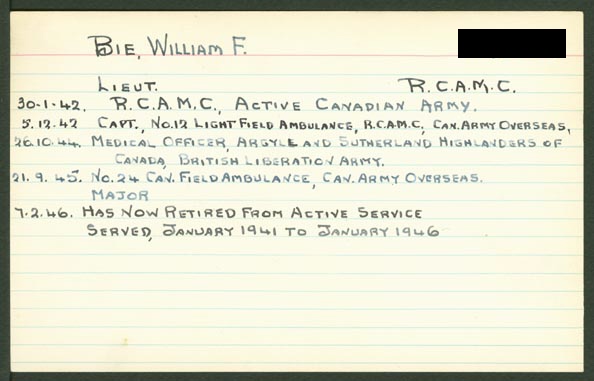 BIE, WILLIAM F.
LIEUT. R.C.A.M.C.
30-1-42. R.C.A.M.C., ACTIVE CANADIAN ARMY.
5.12.42 CAPT., NO.12 LIGHT FIELD AMBULANCE, R.C.A.M.C, CAN. ARMY OVERSEAS,
26.10.44. MEDICAL OFFICER, ARGYLE AND SUTHERLAND HIGHLANDERS OF
CANADA, BRITISH LIBERATION ARMY.
21.9.45. NO.24 CAN. FIELD AMBULANCE, CAN. ARMY OVERSEAS.
MAJOR
7.2.46. HAS NOW RETIRED FROM ACTIVE SERVICE
SERVED, JANUARY 1941 TO JANUARY 1946